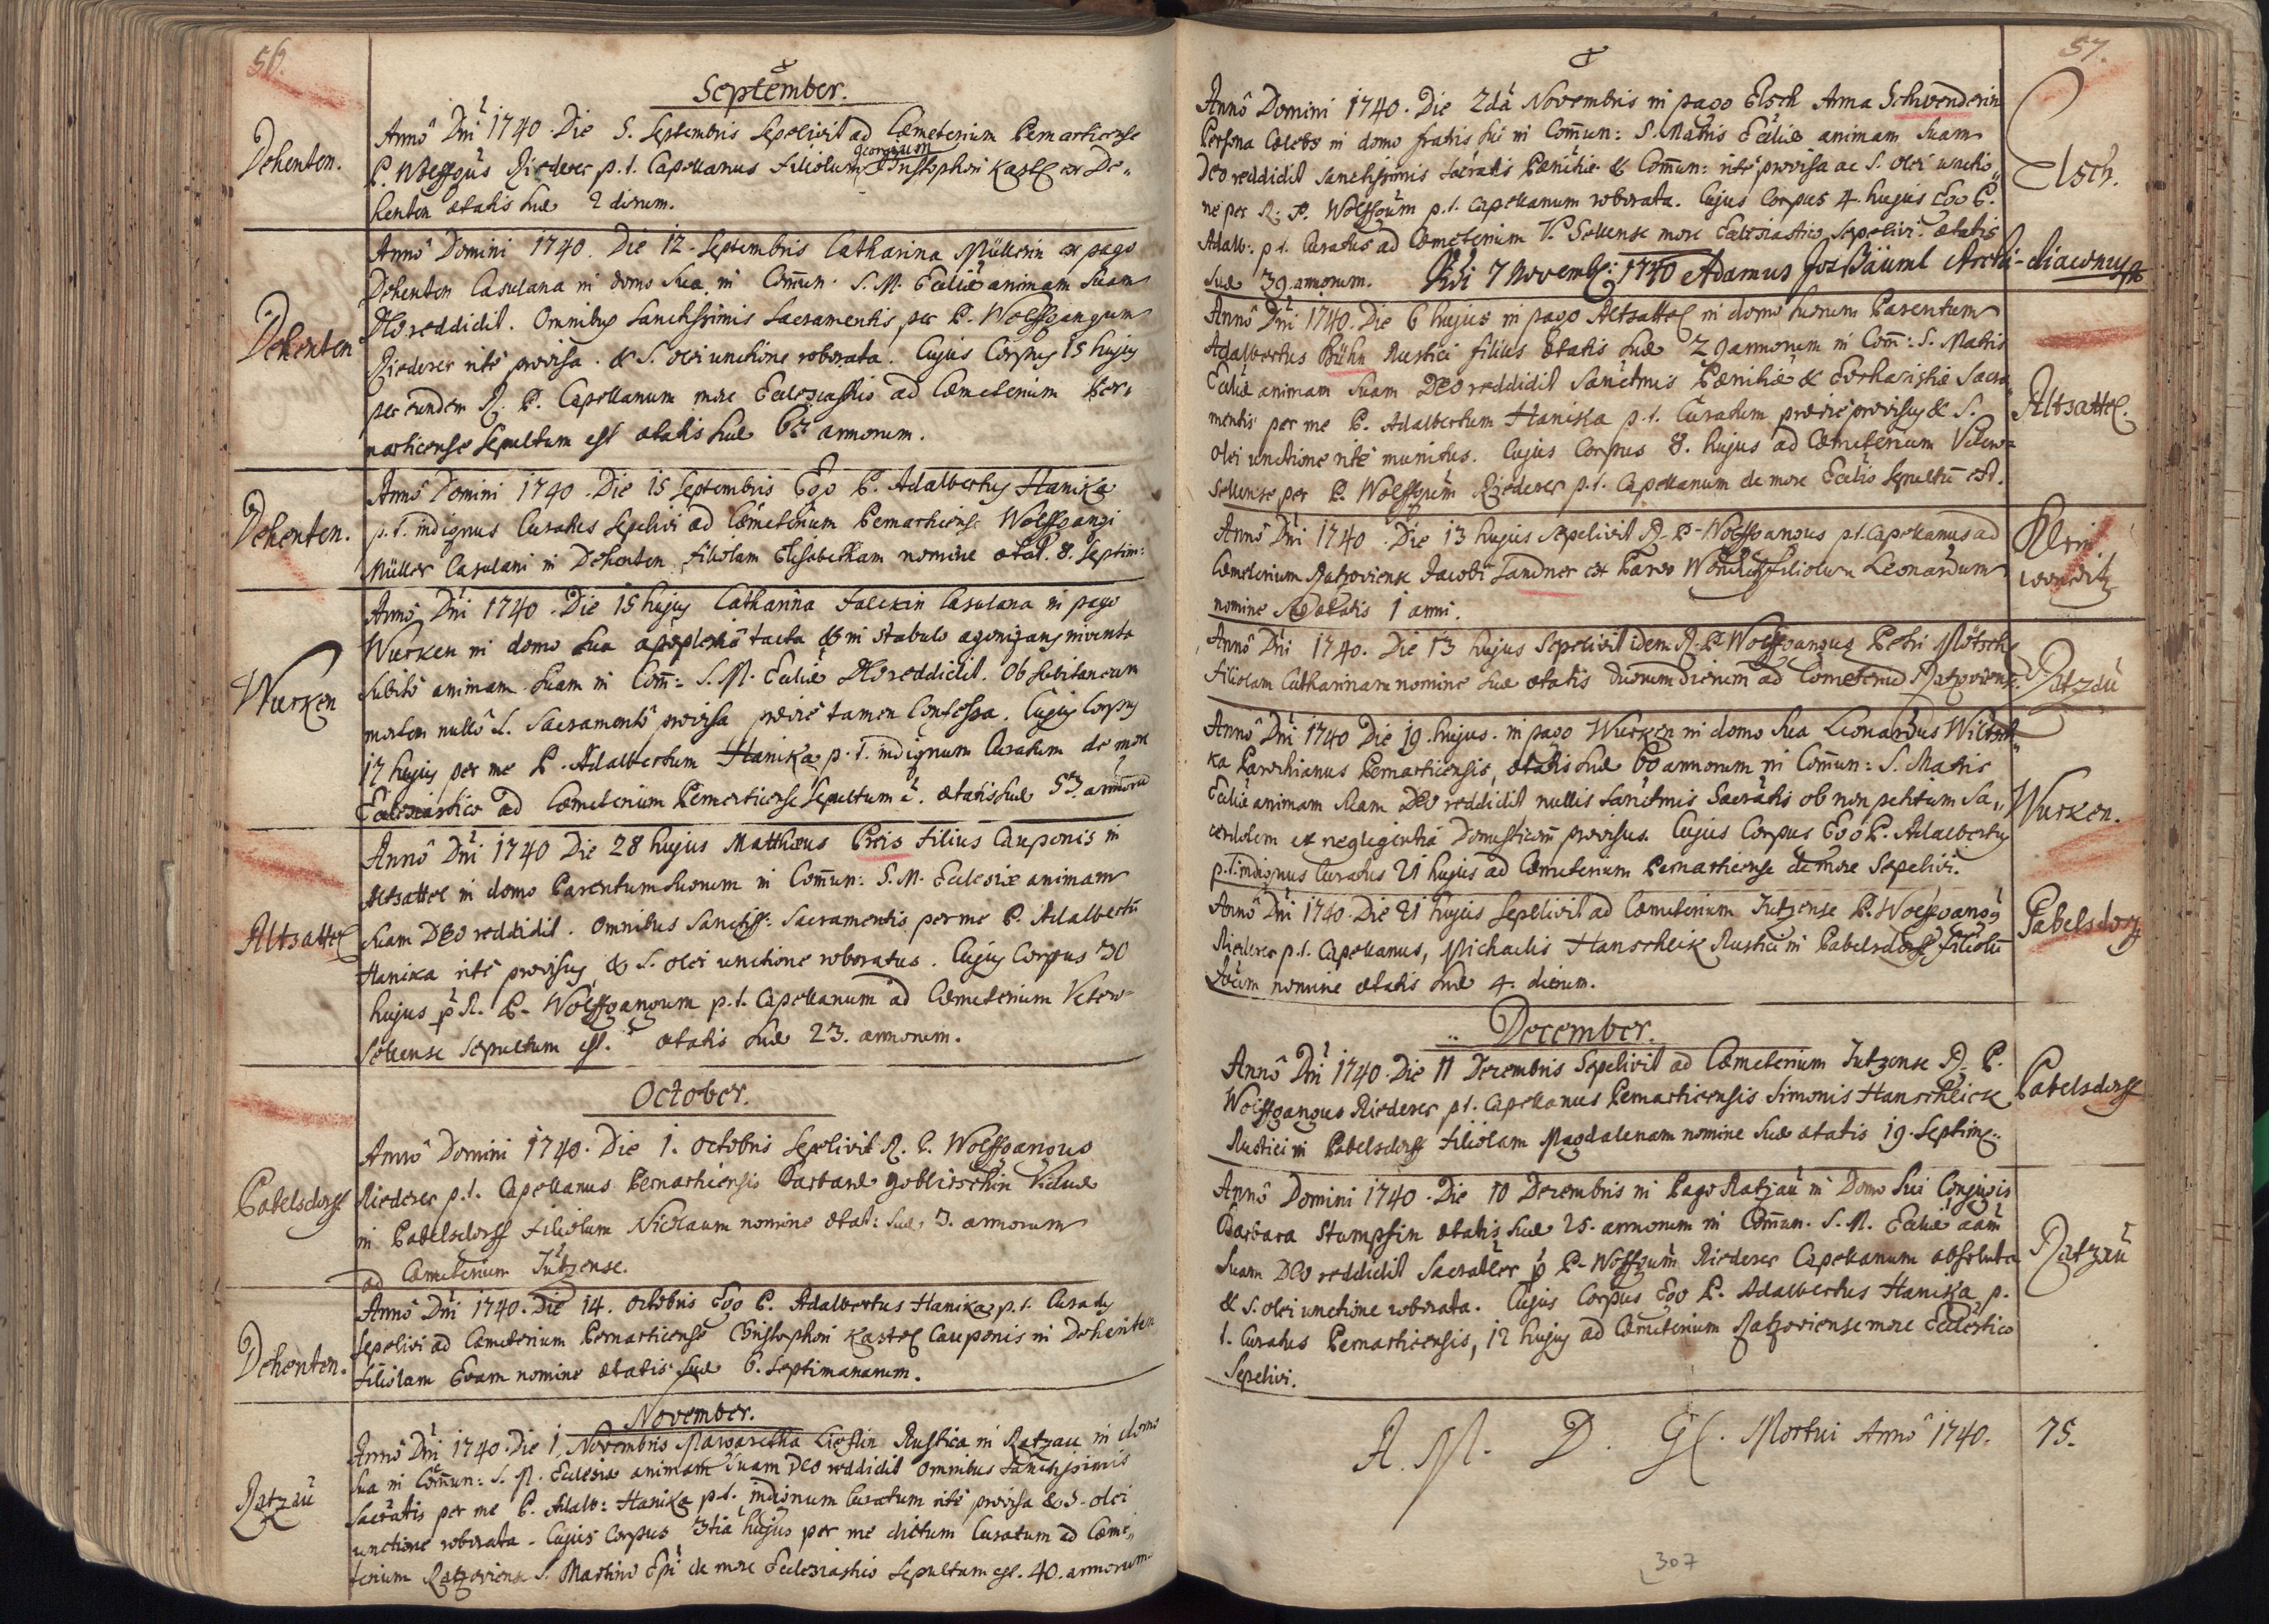 56.
September.
Dehenten.
Annô Dnī 1740. Die 5. Septembris Sepelivit ad Cæmeterium Pernarticense
P. Wolffgūs Riederer p. t. Capellanus filiolum Georgium Christophori Kastl ex De„
henten ætatis suæ 2 dierum.
Dehenten
Annô Domini 1740. Die 12. Septembris Catharina Müllerin ex pago
Dehenten Casulana in domo sua in Com̄un. S. M. Eccliæ animam suam
DEo reddidit. Omnibus Sanctissimis Sacramentis per P. Wolffgangum
Riederer ritè provisa & S. olei unctione roborata. Cujus Corpus 15 hujus
per eundem R. P. Capellanum more Ecclesiastico ad Cæmeterium Per„
narticense sepultum est ætatis suæ annorum.
Dehenten.
Annô Domini 1740. Die 15 Septembris Ego P. Adalbertus Hanika
p. t. indignus Curatus sepelivi ad Cæmeterium Pernarticense Wolffgangi
Müller Casulani in Dehenten filiolam Elisabetham nomine ætat. 8. Septim:
Wurken
Annô Dnī 1740. Die 15 hujus Catharina Falckin Casulana in pago
Wurken in domo sua apoplexiâ tacta & in stabulo agonizans inventa
subitò animam suam in Com̄: S. M. Eccliæ DEo reddidit. Ob subitaneam
mortem nullô S. Sacramentô provisa prævie tamen Confessa. Cujus Corpus
17 hujus per me P. Adalbertum Hanika p. t. indignum Curatum de more
Ecclesiastico ad Cæmeterium Pernarticense sepultum ē. ætatis suæ 53. annorū
Altsattel
Annô Dnī 1740 Die 28 hujus Matthæus Preis filius Cauponis in
Altsattel in domo Parentum suorum in Com̄un: S. M. Ecclesiæ animam
suam DEo reddidit. Omnibus Sanctiss: Sacramentis per me P. Adalbertū
Hanika ritè provisus, & S. olei unctione roboratus. Cujus Corpus 30
hujus p R. P. Wolffgangum p. t. Capellanum ad Cæmeterium Vetero-
Sellense sepultum est. ætatis suæ 23. annorum.
October.
Pabelsdorff
Annô Domini 1740. Die 1. Octobris Sepelivit R. P. Wolffgangus
Riederer p. t. Capellanus Pernarticensis Barbaræ Goblirschin Viduæ
in Pabelsdorff filiolum Nicolaum nomine ætat: suæ 3. annorum
ad Cæmeterium Jutzense.
Dehenten.
Annô Dnī 1740. Die 14. Octobris Ego P. Adalbertus Hanika p. t. Curatus
sepelivi ad Cæmeterium Pernarticense Christophori Kastel Cauponis in Dehenten
filiolam Evam nomine ætatis suæ 6. Septimanarum.
November.
Ratzau
Annô Dnī 1740. Die 1. Novembris Margaretha Rustica in Ratzau in domo
sua in Com̄un: S. M. Ecclesiæ animam suam DEo reddidit omnibus Sanctissimis
Sacrātis per me P. Adalb: Hanika p. t. indignum Curatum ritè provisa & S. olei
unctione roborata. Cujus Corpus 3tia hujus per me dictum Curatum ad Cæme„
terium Ratzoviense S. Martini Epī de more Ecclesiastico sepultum est. 40. annorum
57.
Annô Domini 1740. Die 2dâ Novembris in pago Elsch Anna Schwenderin
Persona Cælebs in domo fratris sui in Com̄un: S. Matris Eccliæ animam suam
Deo reddidit sanctissimis Sacratis Pænitiæ & Com̄un: ritè provisa ac S. olei unctio„
ne per R. P. Wolffgūm p. t. Capellanum roborata. Cujus Corpus 4. hujus Ego P.
Adalb: p. t. Curatus ad Cæmeterium V. Sellense more Ecclesiastico sepelivi. ætatis
suæ 39. annorum. Vidi 7 Novemb: 1740 Adamus Jos Bäuml Archi-diaconus
Elsch.
Annô Dnī 1740. Die 6 hujus in pago Altsattel in domo suorum Parentum
Adalbertus Bühn Rustici filius ætatis suæ 29 annorum in Com̄: S. Matris
Eccliæ animam suam DEO reddidit Sanctmis Pænitiæ & Eucharistiæ Sacra„
mentis per me P. Adalbertum Hanika p. t. Curatum prævie provisus & S.
olei unctione ritè munitus. Cujus Corpus 8. hujus ad Cæmeterium Vetero=
Sellense per P. Wolffgūm Riederer p. t. Capellanum de more Ecclīo sepultū est.
Altsattel.
Annô Dnī 1740. Die 13 hujus sepelivit R. P. Wolffgangus p. t. Capellanus ad
Cæmeterium Ratzoviense Jacobi Sandner ex Parvo Wonditz filiolum Leonardum
nomine suæ ætatis 1 anni.
Klein
wonditz
Annô Dnī 1740. Die 13 hujus Sepelivit idem R. P. Wolffgangus Petri Mötsch
filiolam Catharinam nomine suæ ætatis duorum dierum ad Cæmeteriū Ratzoviense.
Ratzau
Annô Dnī 1740 Die 19. hujus in pago Wurken in domo sua Leonardus
ka Parochianus Pernarticensis, ætatis suæ 60 annorum in Com̄un: S. Matris
Eccliæ animam suam DEO reddidit nullis Sanctmis Sacratis ob non petitum Sa„
cerdotem et negligentiâ Domesticorū provisus. Cujus Corpus Ego P. Adalbertus
p. t. indignus Curatus 21 hujus ad Cæmeterium Pernarticense de more sepelivi.
Wurken.
Annô Dnī 1740. Die 21 hujus sepelivit ad Cæmeterium Jutzense P. Wolffgangus
Riederer p. t. Capellanus, Michaelis Hanschlik Rustici in Pabelsdorff filiolū
nomine ætatis suæ 4. dierum.
Pabelsdorff
December.
Annô Dnī 1740. Die 11 Decembris Sepelivit ad Cæmeterium Jutzense R. P.
Wolffgangus Riederer p. t. Capellanus Pernarticensis Simonis Hanschlick
Rustici in Pabelsdorff filiolam Magdalenam nomine suæ ætatis 19. Septim:
Pabelsdorff
Annô Domini 1740. Die 10 Decembris in Pago Ratzau in Domo sui Conjugis
Barbara Stumpfin ætatis suæ 25. annorum in Com̄un. S. M. Eccliæ aam̄
suam DEO reddidit Sacralter p P. Wolffgūm Riederer Capellanum absoluta
& S. olei unctione roborata. Cujus Corpus Ego P. Adalbertus Hanika p.
t. Curatus Pernarticensis, 12 hujus ad Cæmeterium Ratzoviense more Ecclestico
Sepelivi.
Ratzau
A. M. D. Gl. Mortui Annô 1740. 75.
307